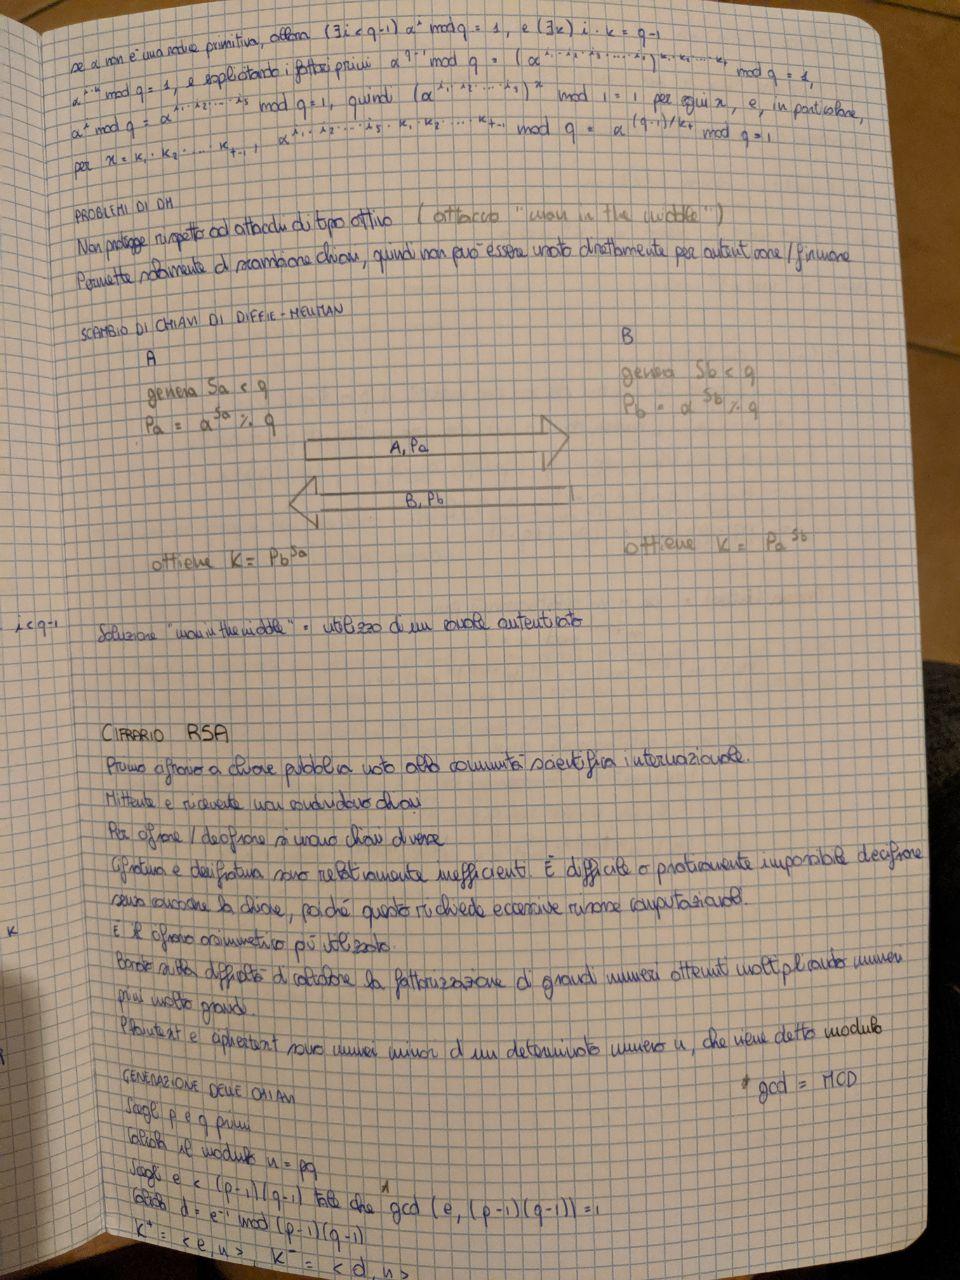 se α non è una radice primitiva, allora (∃i < q-1) α^i mod q = 1, e (∃k) i·k = q-1
α^i·k mod q = 1, e esplicitando i fattori primi α^q-1 mod q = (α^i₁·i₂·...·iₛ)^k₁·k₂·...·kₜ mod q = 1,
α^i mod q = α^i₁·i₂·...·iₛ mod q = 1, quindi (α^i₁·i₂·...·iₛ)^x mod 1 = 1 per ogni x, e, in particolare,
per x = k₁·k₂·...·kₜ₋₁, α^i₁·i₂·...·iₛ·k₁·k₂·...·kₜ₋₁ mod q = α^(q-1)/kₜ mod q = 1
PROBLEMI DI DH
Non protegge rispetto ad attacchi di tipo attivo (attacco "man in the middle")
Permette solamente di scambiare chiavi, quindi non può essere usato direttamente per autenticare / firmare
SCAMBIO DI CHIAVI DI DIFFIE-HELLMAN
A B
genera Sa < q genera Sb < q
Pa = α^Sa % q Pb = α^Sb % q
A, Pa
B, Pb
ottiene K = Pb^Sa ottiene K = Pa^Sb
i < q-1
Soluzione "man in the middle" = utilizzo di un canale autenticato
CIFRARIO RSA
Primo cifrario a chiave pubblica noto alla comunità scientifica internazionale.
Mittente e ricevente non condividono chiavi
Per cifrare / decifrare si usano chiavi diverse
Cifratura e decifratura sono relativamente inefficienti. È difficile o praticamente impossibile decifrare
senza conoscere la chiave, poiché questo richiede eccessive risorse computazionali.
K
È il cifrario asimmetrico più utilizzato.
Basato sulla difficoltà di calcolare la fattorizzazione di grandi numeri ottenuti moltiplicando numeri
primi molto grandi.
Plaintext e ciphertext sono numeri minori di un determinato numero n, che viene detto modulo
GENERAZIONE DELLE CHIAVI
* gcd = MCD
Scegli p e q primi
Calcola il modulo n = pq
Scegli e < (p-1)(q-1) tale che gcd (e, (p-1)(q-1)) = 1
Calcola d = e⁻¹ mod (p-1)(q-1)
K⁺ = <e, n>, K⁻ = <d, n>